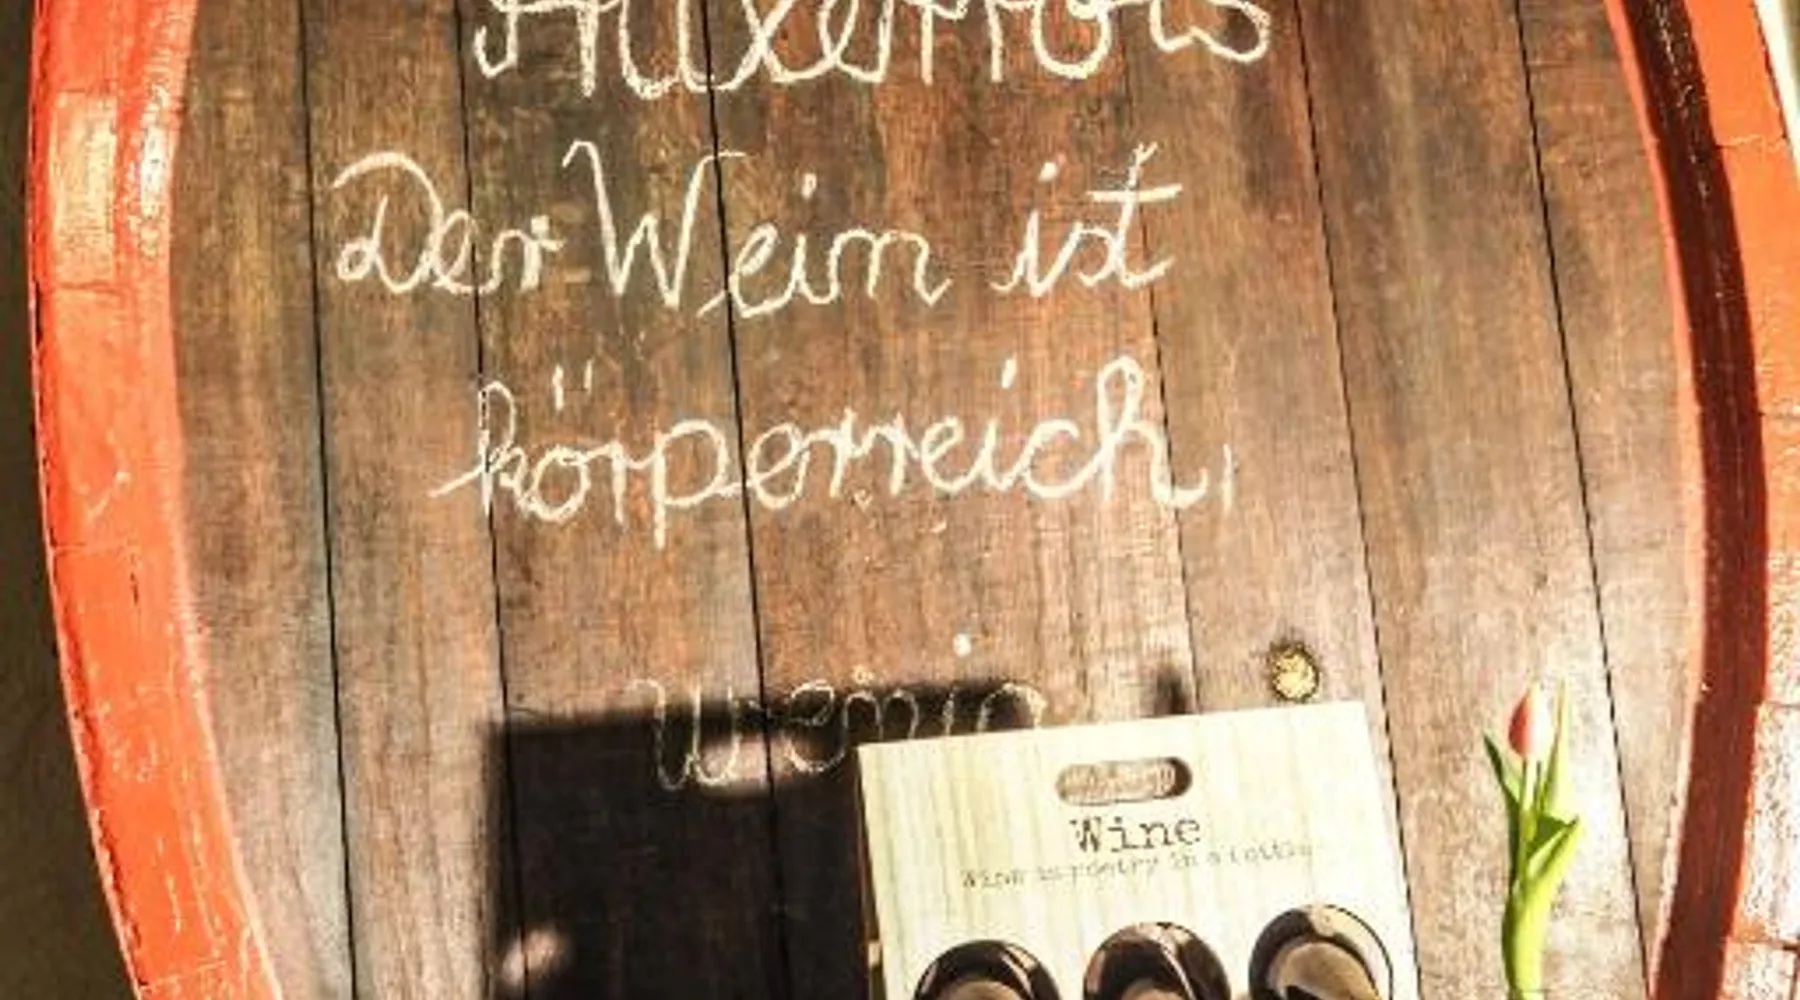 Auxerrois
Der Wein ist
körperreich,
weinig
Wine
Wine is poetry in a bottle